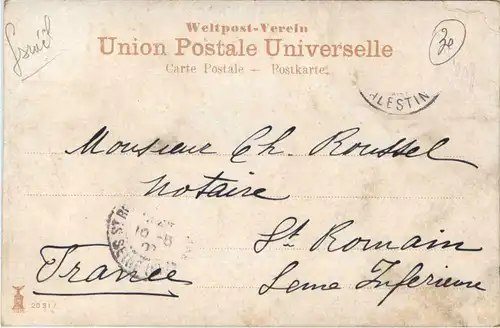 Israël
Weltpost-Verein
Union Postale Universelle
Carte Postale — Postkarte
30
ALESTIN
Monsieur Ch. Roussel
Notaire
St Romain
France
Seine Inférieure